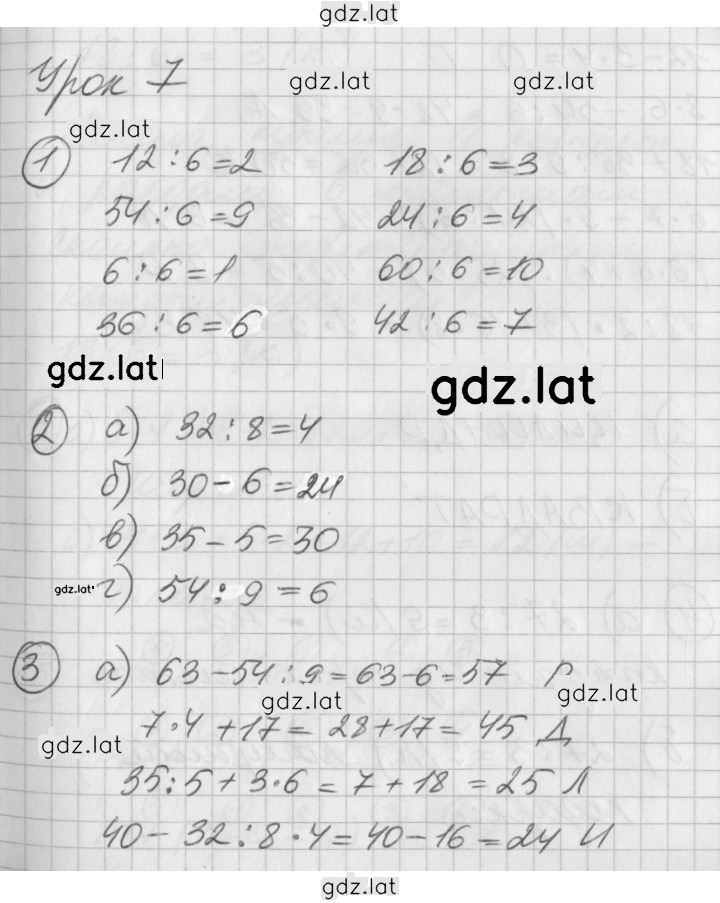 gdz.lat
Урок 7 gdz.lat gdz.lat
gdz.lat
1 12:6=2 18:6=3
54:6=9 24:6=4
6:6=1 60:6=10
36:6=6 42:6=7
gdz.lat gdz.lat
2 а) 32:8=4
б) 30-6=24
в) 35-5=30
gdz.lat г) 54:9=6
3 а) 63-54:9=63-6=57 Р
gdz.lat gdz.lat
7·4+17=28+17=45 Д
gdz.lat
35:5+3·6=7+18=25 Л
40-32:8·4=40-16=24 И
gdz.lat